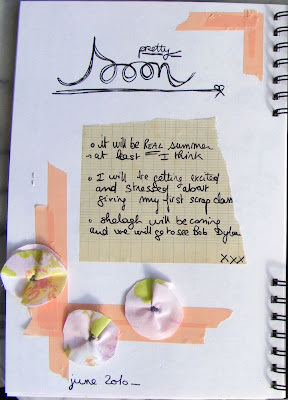 pretty
Soon
o it will be REAL summer
→ at least I think
o I will be getting excited
and stressed about
giving my first scrap class
o shelagh will be coming
and we will go to see Bob Dylan
xxx
june 2010_